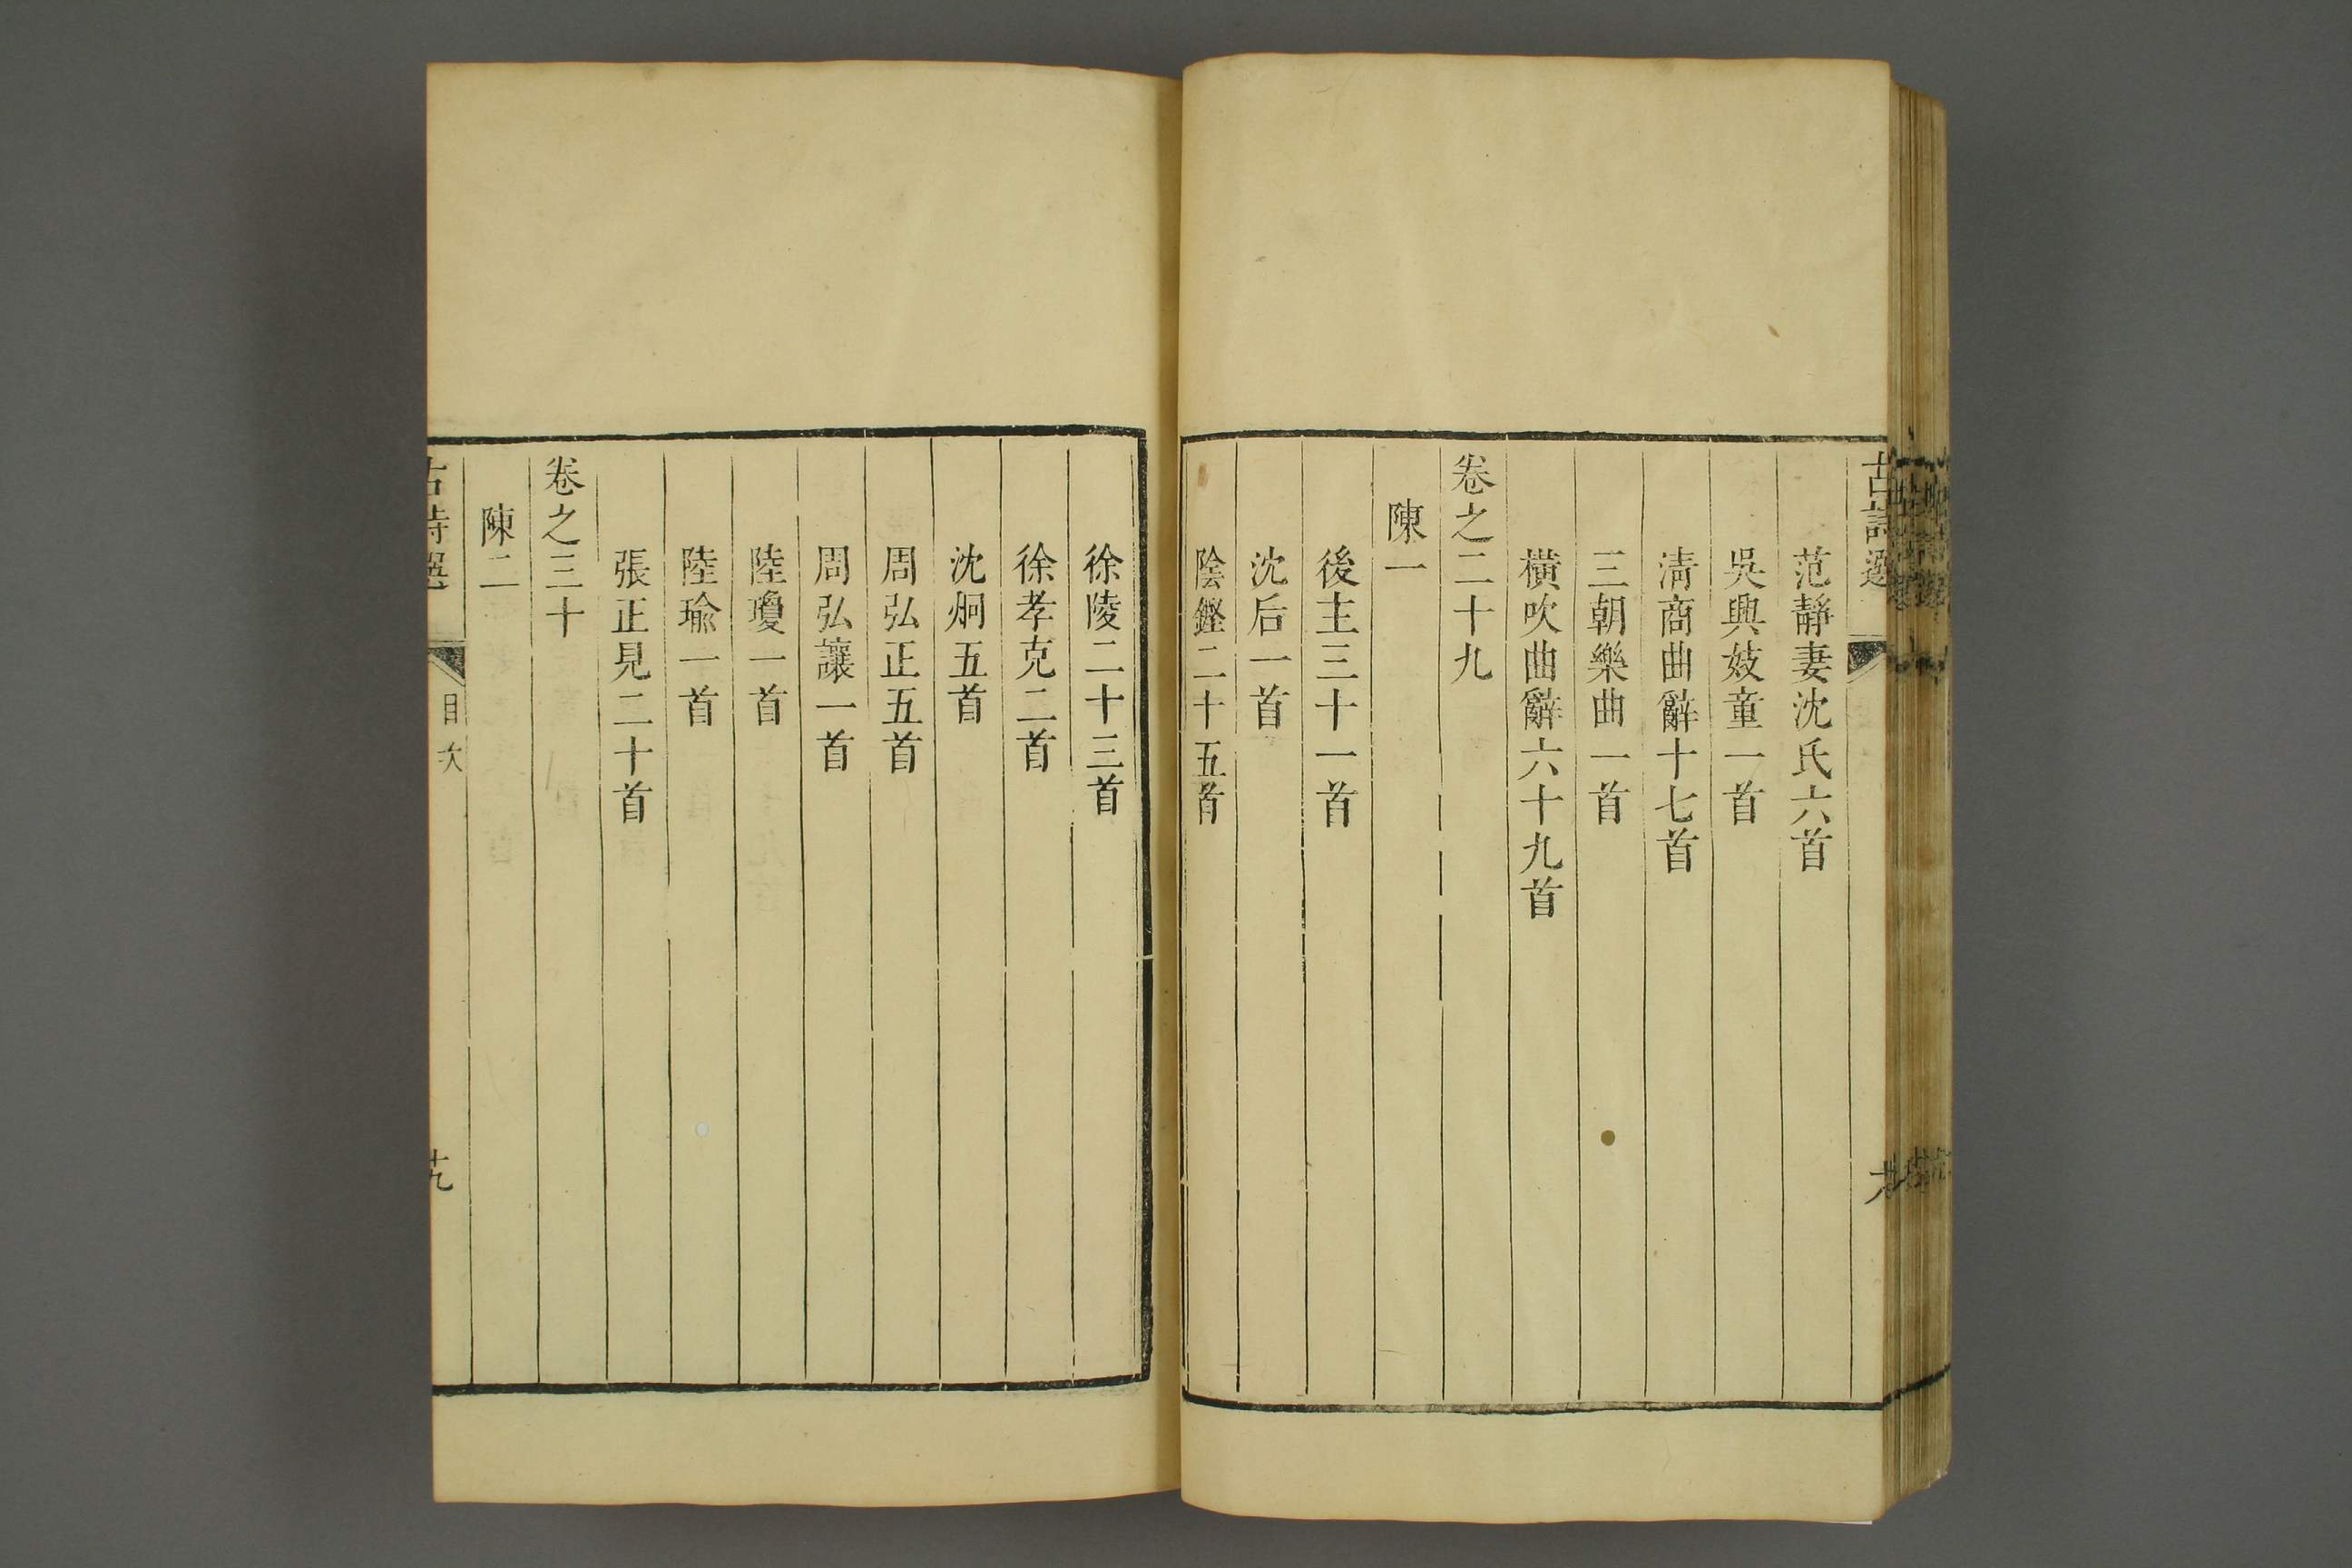 古詩選
范靜妻沈氏六首
吳興妓童一首
淸商曲辭十七首
三朝樂曲一首
橫吹曲辭六十九首
卷之二十九
陳一
後主三十一首
沈后一首
陰鏗二十五首
徐陵二十三首
徐孝克二首
沈炯五首
周弘正五首
周弘讓一首
陸瓊一首
陸瑜一首
張正見二十首
卷之三十
陳二
古詩選
目次
十九